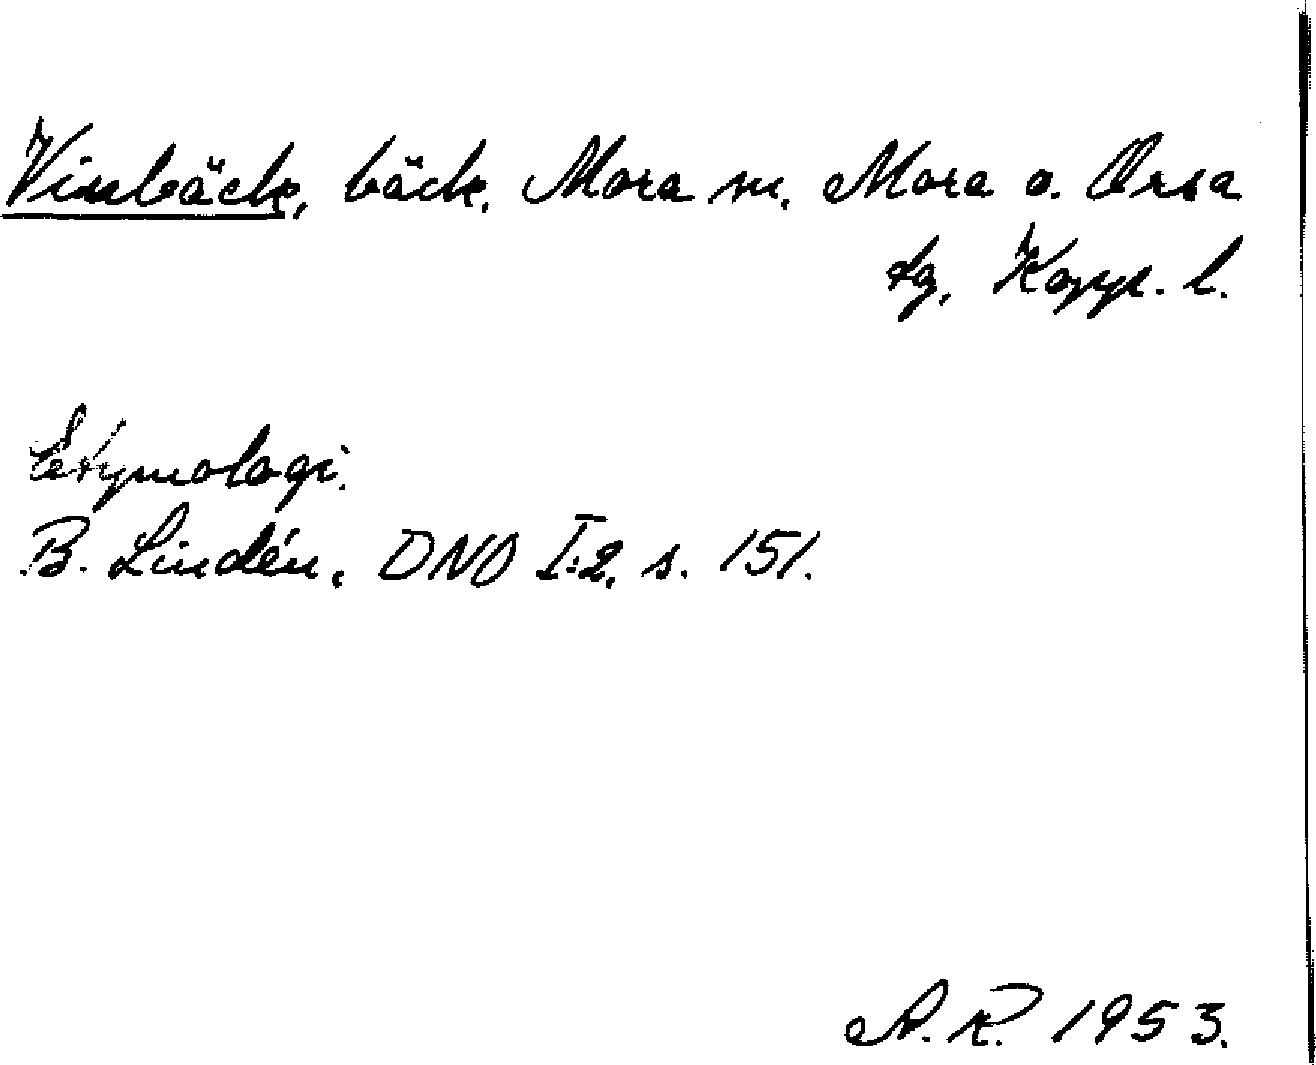 Vinbäck, bäck, Mora sn, Mora o. Orsa
tg, Kopp. l.
Etymologi.
B. Lindén, DNO I:2, s. 151.
A.R. 1953.